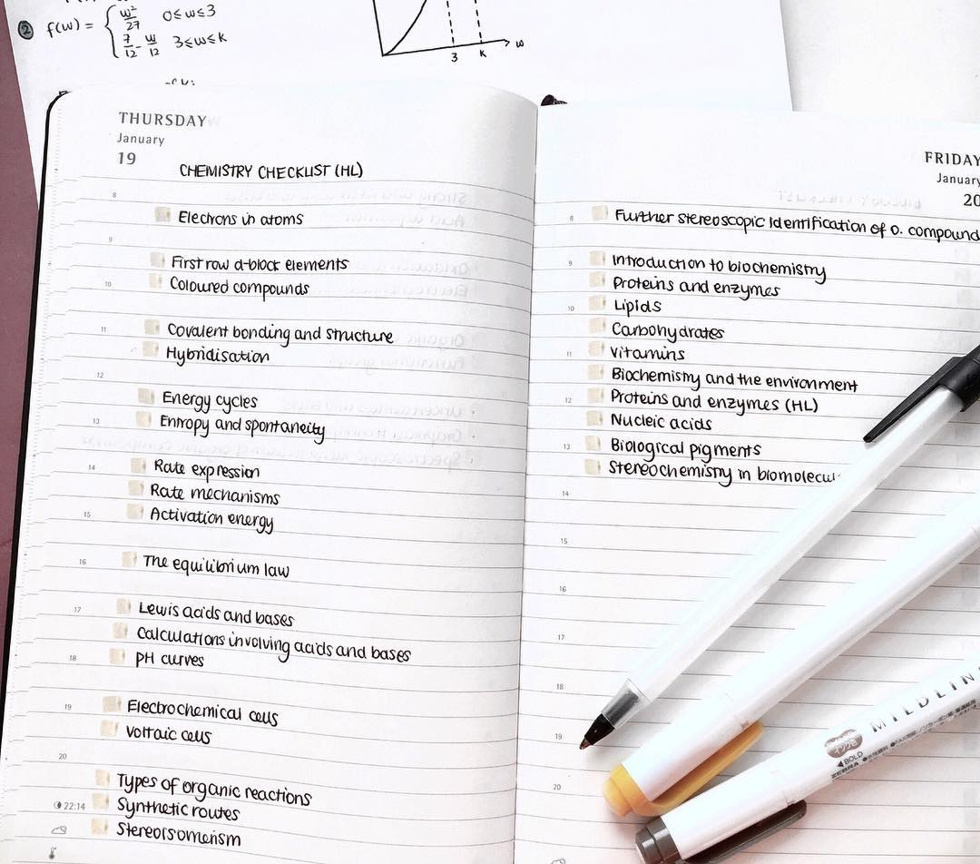 ② f(w) = { w²/27 0≤w≤3
7/12 - w/12 3≤w≤k
3 k w
THURSDAY
January
19
CHEMISTRY CHECKLIST (HL)
8
Electrons in atoms
9
First row d-block elements
10 Coloured compounds
11 Covalent bonding and structure
Hybridisation
12
Energy cycles
13 Entropy and spontaneity
14 Rate expression
Rate mechanisms
15 Activation energy
16 The equilibrium law
17 Lewis acids and bases
Calculations involving acids and bases
18 pH curves
19 Electrochemical cells
Voltaic cells
20
Types of organic reactions
22:14 Synthetic routes
Stereoisomerism
FRIDAY
January
20
8 Further stereoscopic identification of o. compound
9 Introduction to biochemistry
Proteins and enzymes
10 Lipids
Carbohydrates
11 Vitamins
Biochemistry and the environment
12 Proteins and enzymes (HL)
Nucleic acids
13 Biological pigments
Stereochemistry in biomolecul
14
15
16
17
18
19
20
MILDLIN
BOLD
ZEBRA